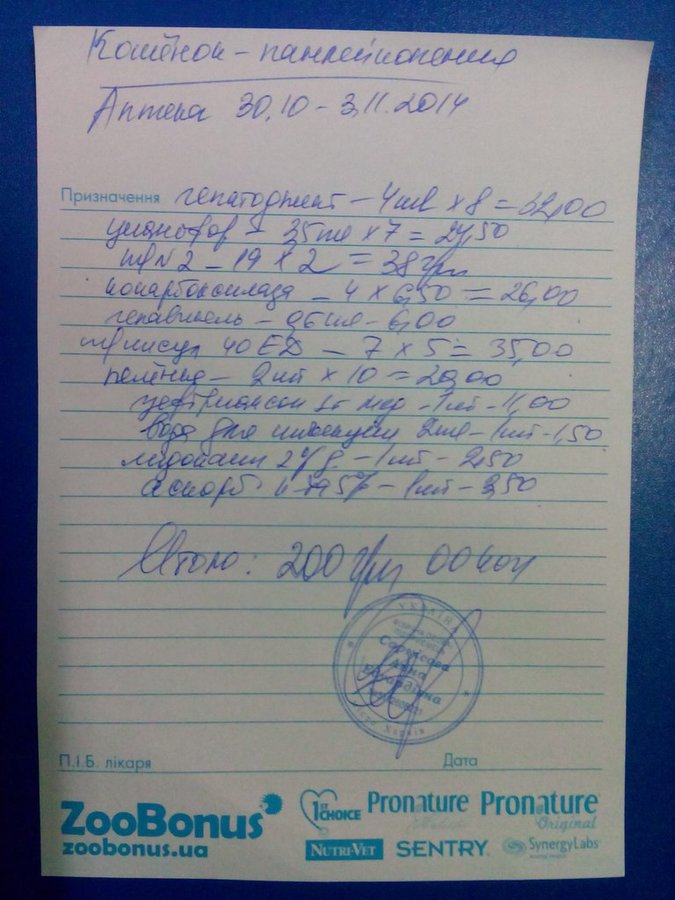 Котёнок - панлейкопения
Аптека 30.10 - 3.11.2014
Призначення гепатоджект - 4мл х 8 = 32,00
- 35мл х 7 = 24,50
№2 - 19 х 2 = 38 грн
кокарбоксилаза - 4 х 6,50 = 26,00
- 6,00
40 ЕД - 7 х 5 = 35,00
пелёнки - 2шт х 10 = 20,00
цефтриаксон - 1шт - 11,00
вода для инъекций 2мл - 1шт - 1,50
лидокаин 2% - 1шт - 2,50
аспарк - 1шт - 3,50
Итого: 200 грн 00 коп
УКРАЇНА
Анна
Харків
П.І.Б. лікаря Дата
ZooBonus
zoobonus.ua
1ST CHOICE Pronature Pronature Original
NUTRI-VET SENTRY SynergyLabs